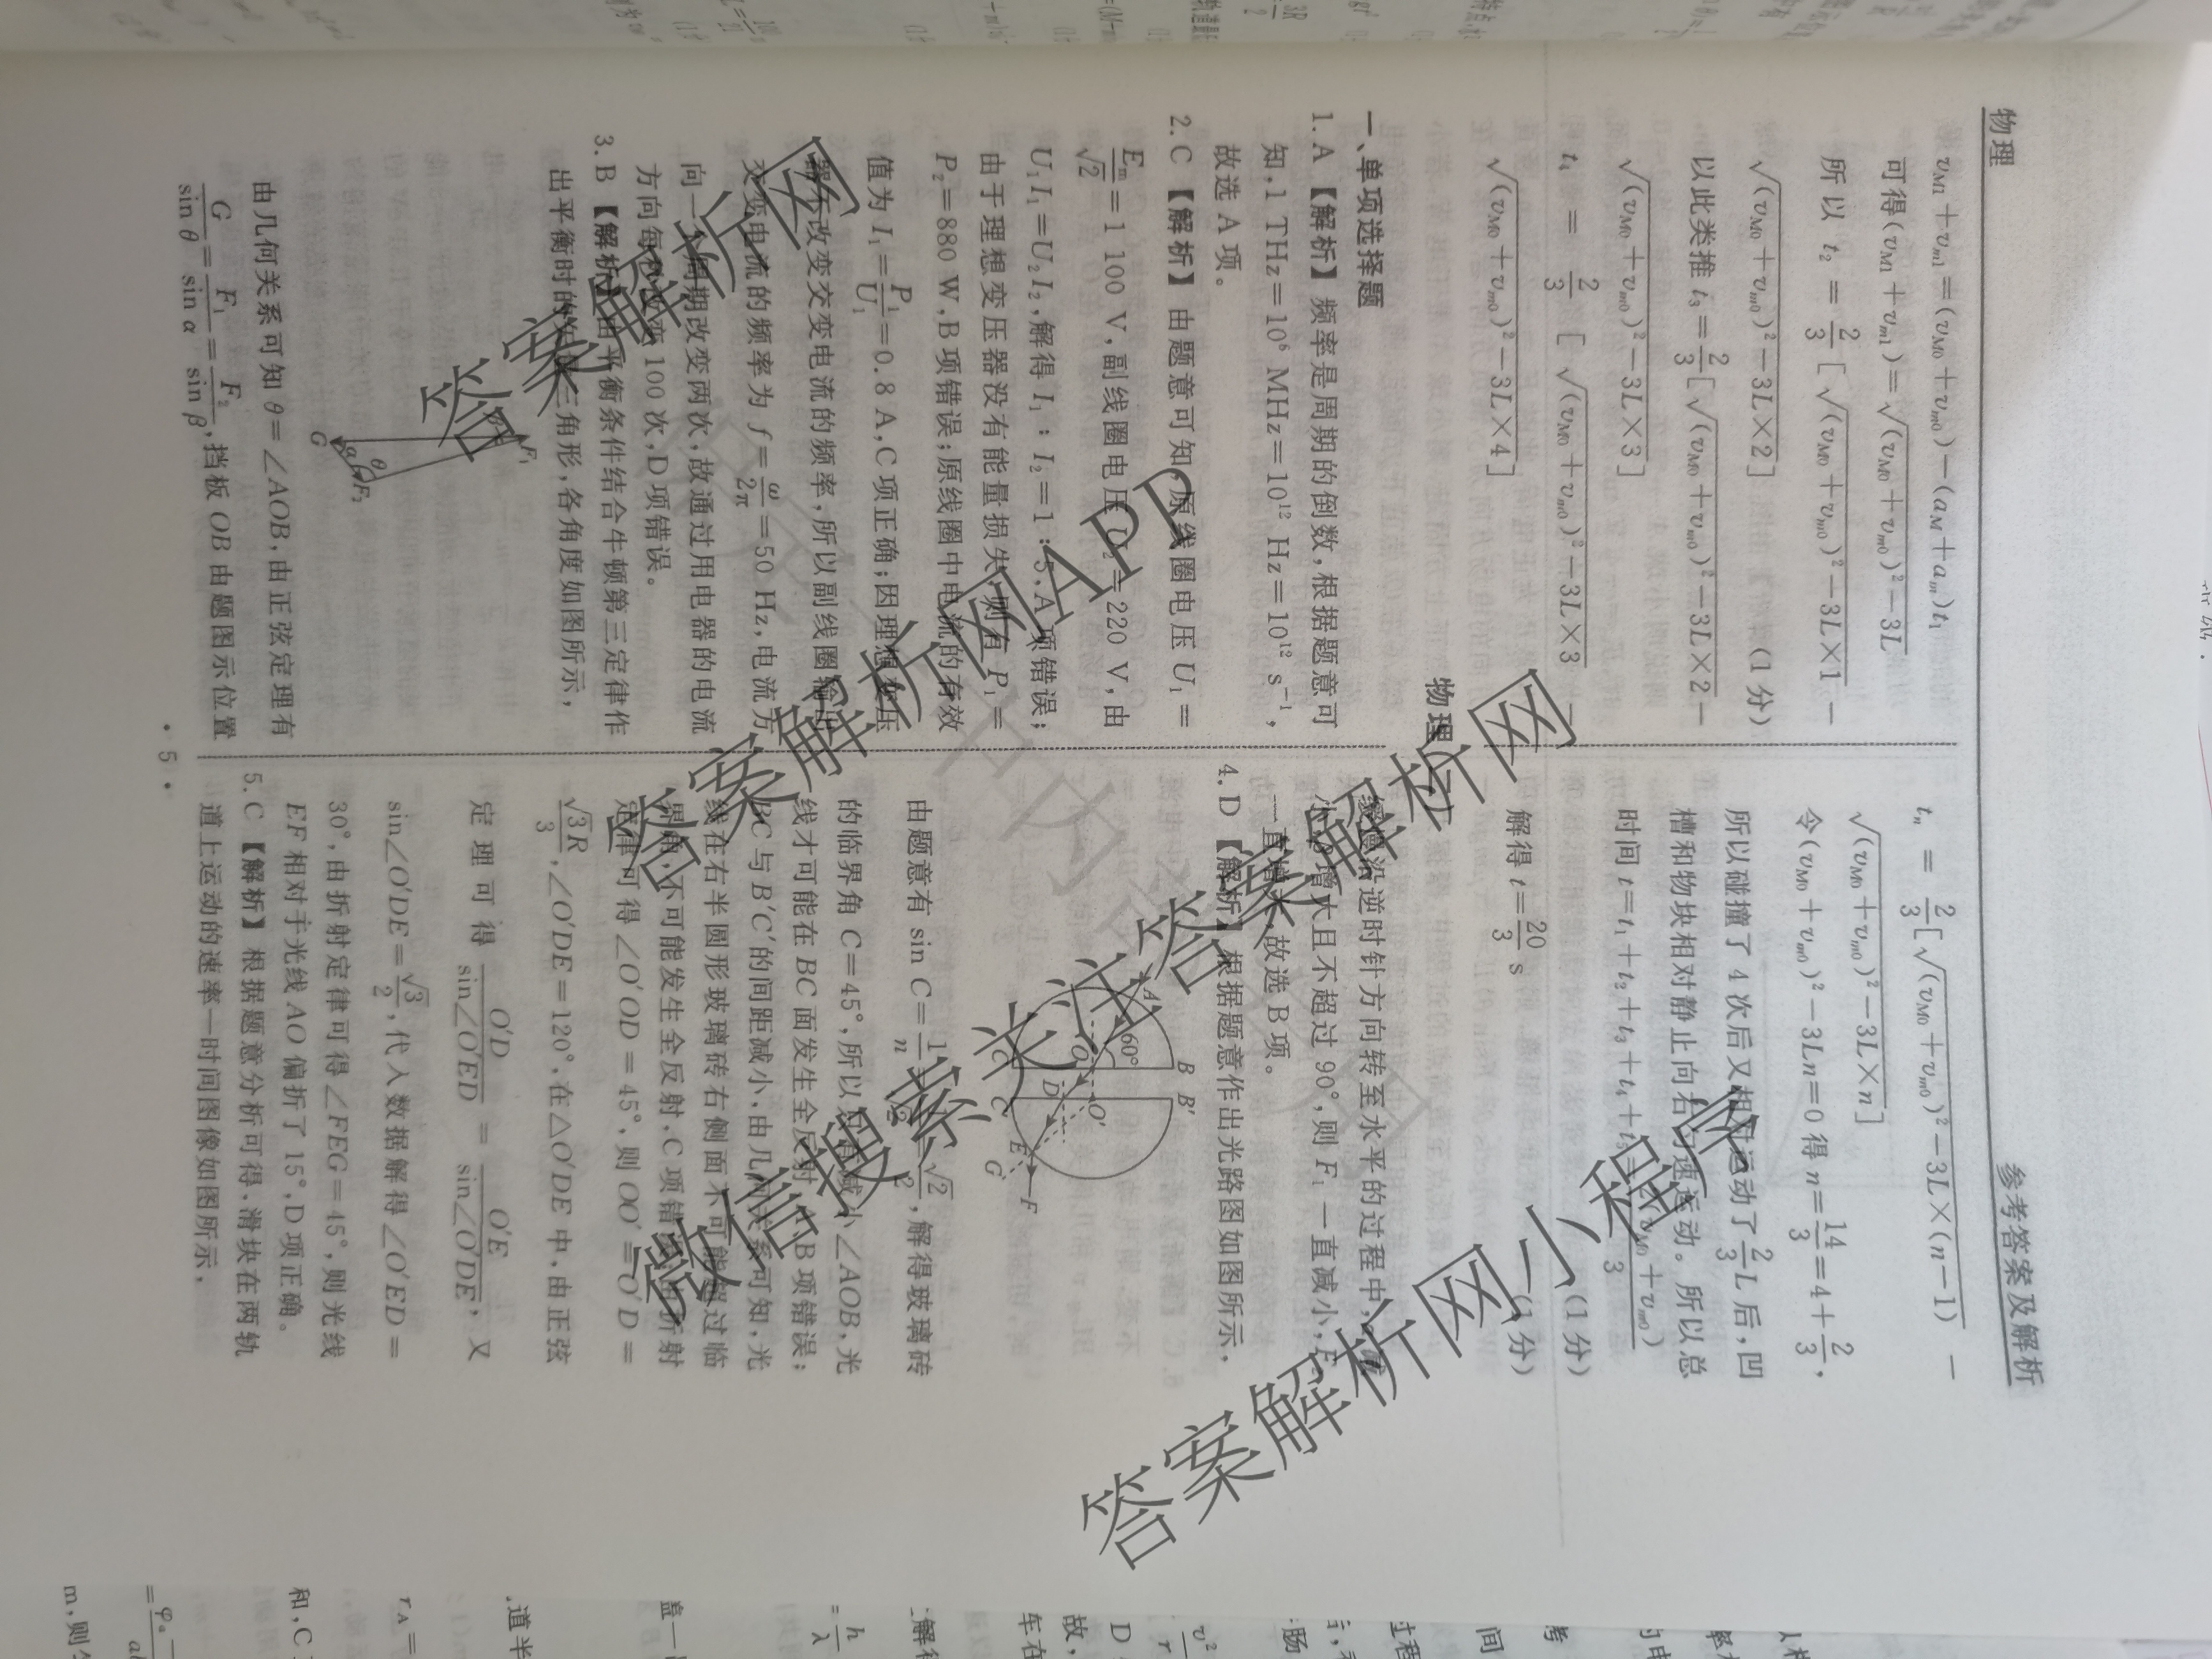 物理
参考答案及解析
v_{M1}+v_{m1}=(v_{M0}+v_{m0})-(a_M+a_m)t_1
可得(v_{M1}+v_{m1})=√((v_{M0}+v_{m0})²-3L)
所以 t_2 = 2/3[√((v_{M0}+v_{m0})²-3L×1) -
√((v_{M0}+v_{m0})²-3L×2)] (1分)
以此类推 t_3=2/3[√((v_{M0}+v_{m0})²-3L×2)-
√((v_{M0}+v_{m0})²-3L×3)]
t_4 = 2/3 [√((v_{M0}+v_{m0})²-3L×3) -
√((v_{M0}+v_{m0})²-3L×4)]
t_n = 2/3[√((v_{M0}+v_{m0})²-3L×(n-1)) -
√((v_{M0}+v_{m0})²-3L×n)]
令(v_{M0}+v_{m0})²-3Ln=0得n=14/3=4+2/3,
所以碰撞了4次后又相对运动了2/3L后,凹
槽和物块相对静止向右匀速运动。所以总
时间t=t_1+t_2+t_3+t_4+t_5= v_{M0}+v_{m0}) 3
(1分)
解得t=20/3 s (1分)
物理
一、单项选择题
1. A 【解析】频率是周期的倒数,根据题意可
知,1 THz=10⁶ MHz=10¹² Hz=10¹² s⁻¹,
故选A项。
2. C 【解析】由题意可知,原线圈电压U_1=
E_m/√2=1 100 V,副线圈电压U_2=220 V,由
U_1I_1=U_2I_2,解得I_1:I_2=1:5,A项错误;
由于理想变压器没有能量损失,则有P_1=
P_2=880 W,B项错误;原线圈中电流的有效
值为I_1=P_1/U_1=0.8 A,C项正确;因理想变压
器不改变交变电流的频率,所以副线圈输出
交变电流的频率为f=ω/2π=50 Hz,电流方
向一个周期改变两次,故通过用电器的电流
方向每秒改变100次,D项错误。
3. B 【解析】由平衡条件结合牛顿第三定律作
出平衡时的矢量三角形,各角度如图所示,
F_1
β
θ
F_2
α
G
由几何关系可知θ=∠AOB,由正弦定理有
G/sin θ=F_1/sin α=F_2/sin β,挡板OB由题图示位置
缓慢沿逆时针方向转至水平的过程中,α减
小,β增大且不超过90°,则F_1一直减小,F_2
一直增大,故选B项。
4. D 【解析】根据题意作出光路图如图所示,
A
60°
B B′
O O′
D
C C′
E
G F
由题意有sin C=1/n=1/√2=√2/2,解得玻璃砖
的临界角C=45°,所以只有减小∠AOB,光
线才可能在BC面发生全反射,A、B项错误;
BC与B′C′的间距减小,由几何关系可知,光
线在右半圆形玻璃砖右侧面不可能超过临
界角,不可能发生全反射,C项错误;由折射
定律可得∠O′OD=45°,则OO′=O′D=
√3R/3,∠O′DE=120°,在△O′DE中,由正弦
定理可得 O′D/sin∠O′ED = O′E/sin∠O′DE,又
sin∠O′DE=√3/2,代入数据解得∠O′ED=
30°,由折射定律可得∠FEG=45°,则光线
EF相对于光线AO偏折了15°,D项正确。
5. C 【解析】根据题意分析可得,滑块在两轨
道上运动的速率—时间图像如图所示,
· 5 ·
答案解析网
答案解析网APP
答案解析网
微信搜索关注答案解析网
答案解析网小程序